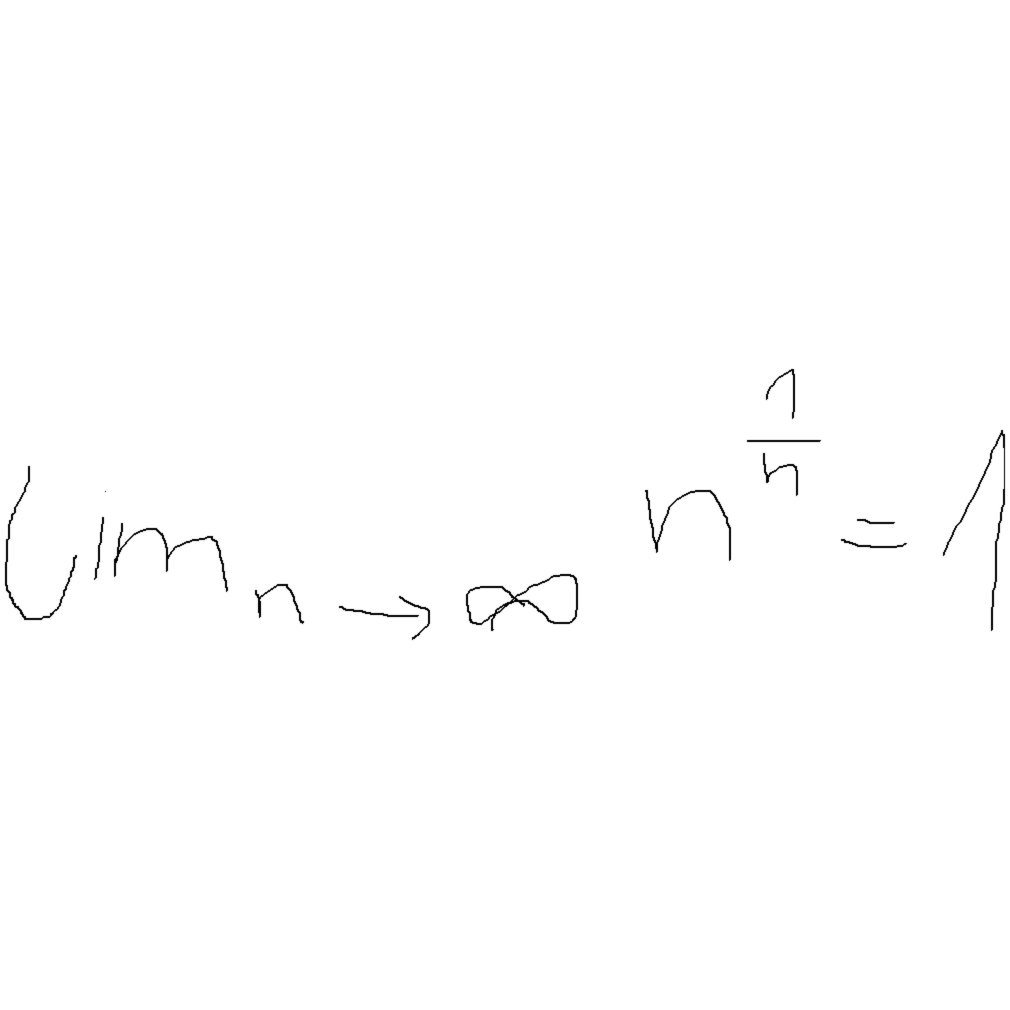 lim n → ∞ n^(1/n) = 1